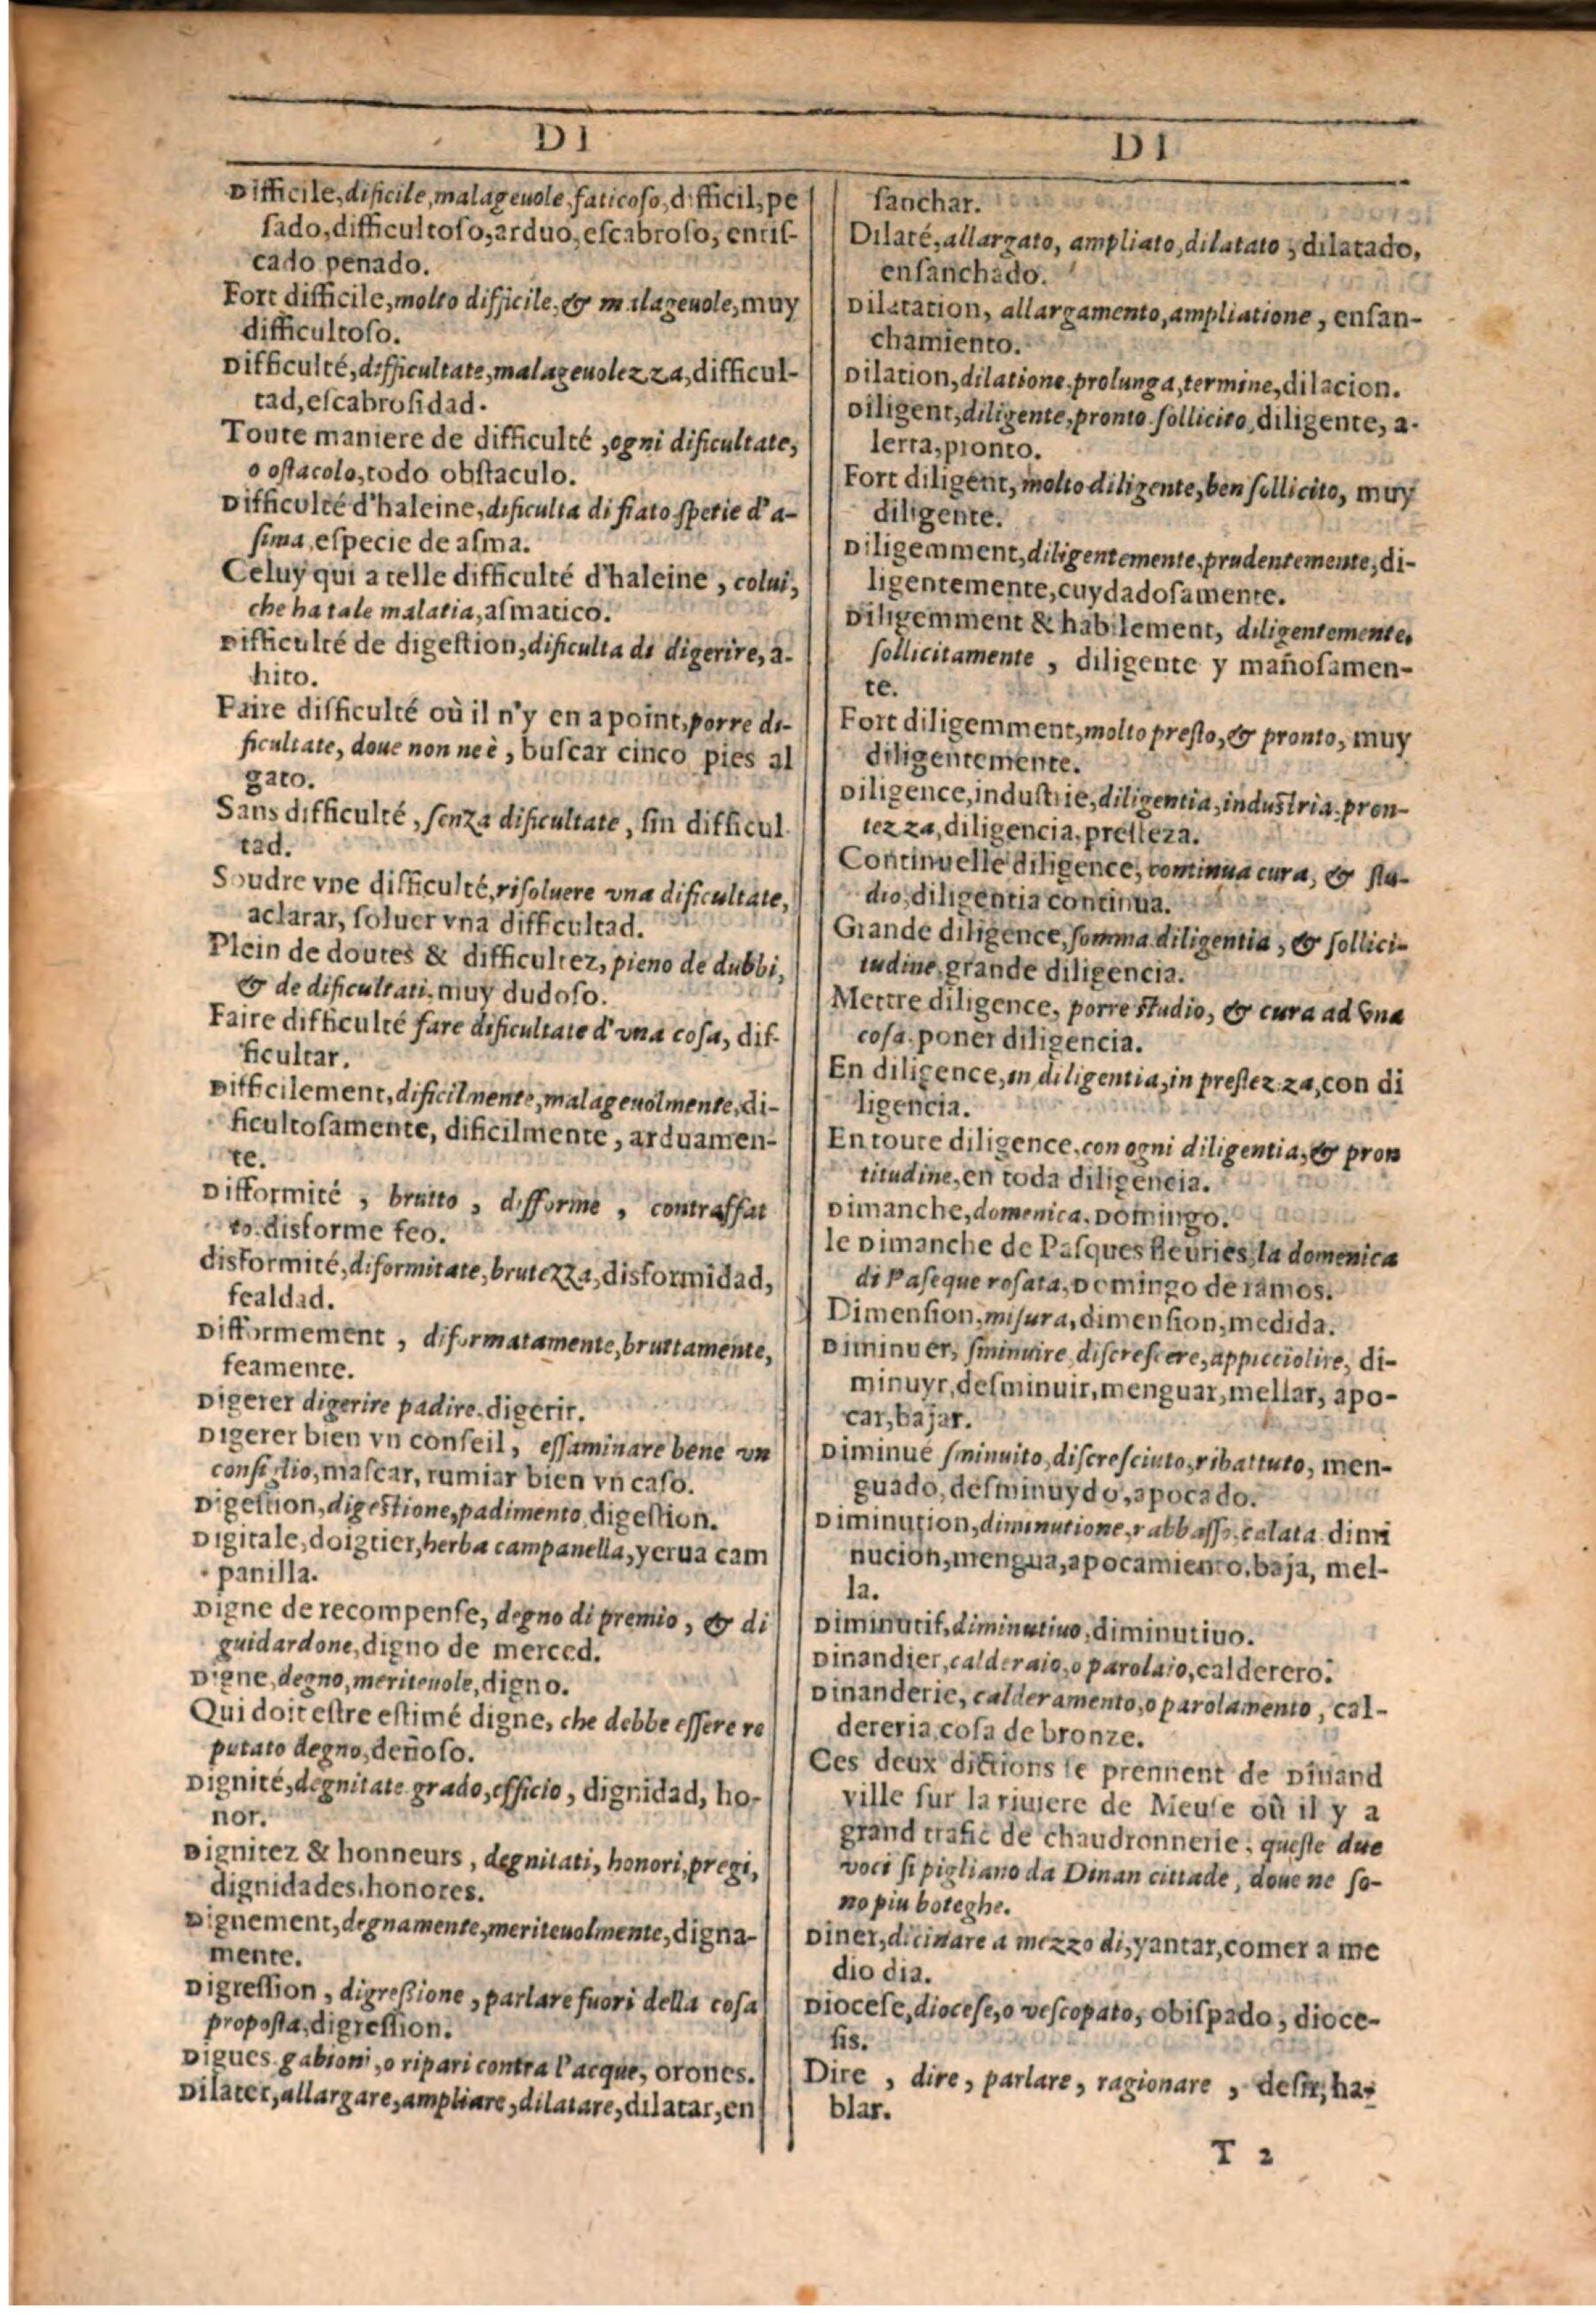 DI
Difficile, dificile, malageuole, faticoso, difficil, pe
sado, difficultoso, arduo, escabroso, enris-
cado penado.
Fort difficile, molto difficile, & malageuole, muy
difficultoso.
Difficulté, difficultate, malageuolezza, difficul-
tad, escabrosidad.
Toute maniere de difficulté, ogni dificultate,
o ostacolo, todo obstaculo.
Difficulté d'haleine, dificulta di fiato spetie d'a-
sima, especie de asma.
Celuy qui a telle difficulté d'haleine, colui,
che ha tale malatia, asmatico.
Difficulté de digestion, dificulta di digerire, a-
hito.
Faire difficulté où il n'y en a point, porre di-
ficultate, doue non ne è, buscar cinco pies al
gato.
Sans difficulté, senza dificultate, sin difficul
tad.
Soudre vne difficulté, risoluere vna dificultate,
aclarar, soluer vna difficultad.
Plein de doutes & difficultez, pieno de dubbi,
& de dificultati, muy dudoso.
Faire difficulté fare dificultate d'vna cosa, dif-
ficultar.
Difficilement, dificilmente, malageuolmente, di-
ficultosamente, dificilmente, arduamen-
te.
Difformité, brutto, difforme, contraffat
to. disforme feo.
disformité, diformitate, brutezza, disformidad,
fealdad.
Difformement, diformatamente, bruttamente,
feamente.
Digerer digerire padire. digerir.
Digerer bien vn conseil, essaminare bene vn
consiglio, mascar, rumiar bien vn caso.
Digestion, digestione, padimento, digestion.
Digitale, doigtier, herba campanella, yerua cam
panilla.
Digne de recompense, degno di premio, & di
guidardone, digno de merced.
Digne, degno, meriteuole, digno.
Qui doit estre estimé digne, che debbe essere re
putato degno, deñoso.
Dignité, degnitate grado, officio, dignidad, ho-
nor.
Dignitez & honneurs, degnitati, honori, pregi,
dignidades, honores.
Dignement, degnamente, meriteuolmente, digna-
mente.
Digression, digressione, parlare fuori della cosa
proposta, digression.
Digues. gabioni, o ripari contra l'acque, orones.
Dilater, allargare, ampliare, dilatare, dilatar, en
DI
sanchar.
Dilaté, allargato, ampliato, dilatato, dilatado,
ensanchado.
Dilatation, allargamento, ampliatione, ensan-
chamiento.
Dilation, dilatione. prolunga, termine, dilacion.
Diligent, diligente, pronto sollicito, diligente, a-
lerta, pronto.
Fort diligent, molto diligente, ben sollicito, muy
diligente.
Diligemment, diligentemente, prudentemente, di-
ligentemente, cuydadosamente.
Diligemment & habilement, diligentemente,
sollicitamente, diligente y mañosamen-
te.
Fort diligemment, molto presto, & pronto, muy
diligentemente.
Diligence, industrie, diligentia, industria. pron-
tezza, diligencia, presteza.
Continuelle diligence, continua cura, & stu-
dio, diligentia continua.
Grande diligence, somma diligentia, & sollici-
tudine, grande diligencia.
Mettre diligence, porre studio, & cura ad vna
cosa. poner diligencia.
En diligence, in diligentia, in prestezza, con di
ligencia.
En toute diligence, con ogni diligentia, & pron
titudine, en toda diligencia.
Dimanche, domenica. Domingo.
le Dimanche de Pasques fleuries, la domenica
di Paseque rosata, Domingo de ramos.
Dimension, misura, dimension, medida.
Diminuer, sminuire, discrescere, appicciolire, di-
minuyr, desminuir, menguar, mellar, apo-
car, bajar.
Diminué sminuito, discresciuto, ribattuto, men-
guado, desminuydo, apocado.
Diminution, diminutione, rabbasso, calata dimi
nucion, mengua, apocamiento, baja, mel-
la.
Diminutif, diminutiuo, diminutiuo.
Dinandier, calderaio, o parolaio, calderero.
Dinanderie, calderamento, o parolamento, cal-
dereria, cosa de bronze.
Ces deux dictions se prennent de Dinand
ville sur la riuiere de Meuse où il y a
grand trafic de chaudronnerie, queste due
voci si pigliano da Dinan cittade, doue ne so-
no piu boteghe.
Diner, dicinare a mezzo di, yantar, comer a me
dio dia.
Diocese, diocese, o vescopato, obispado, dioce-
sis.
Dire, dire, parlare, ragionare, desir, ha-
blar.
T 2